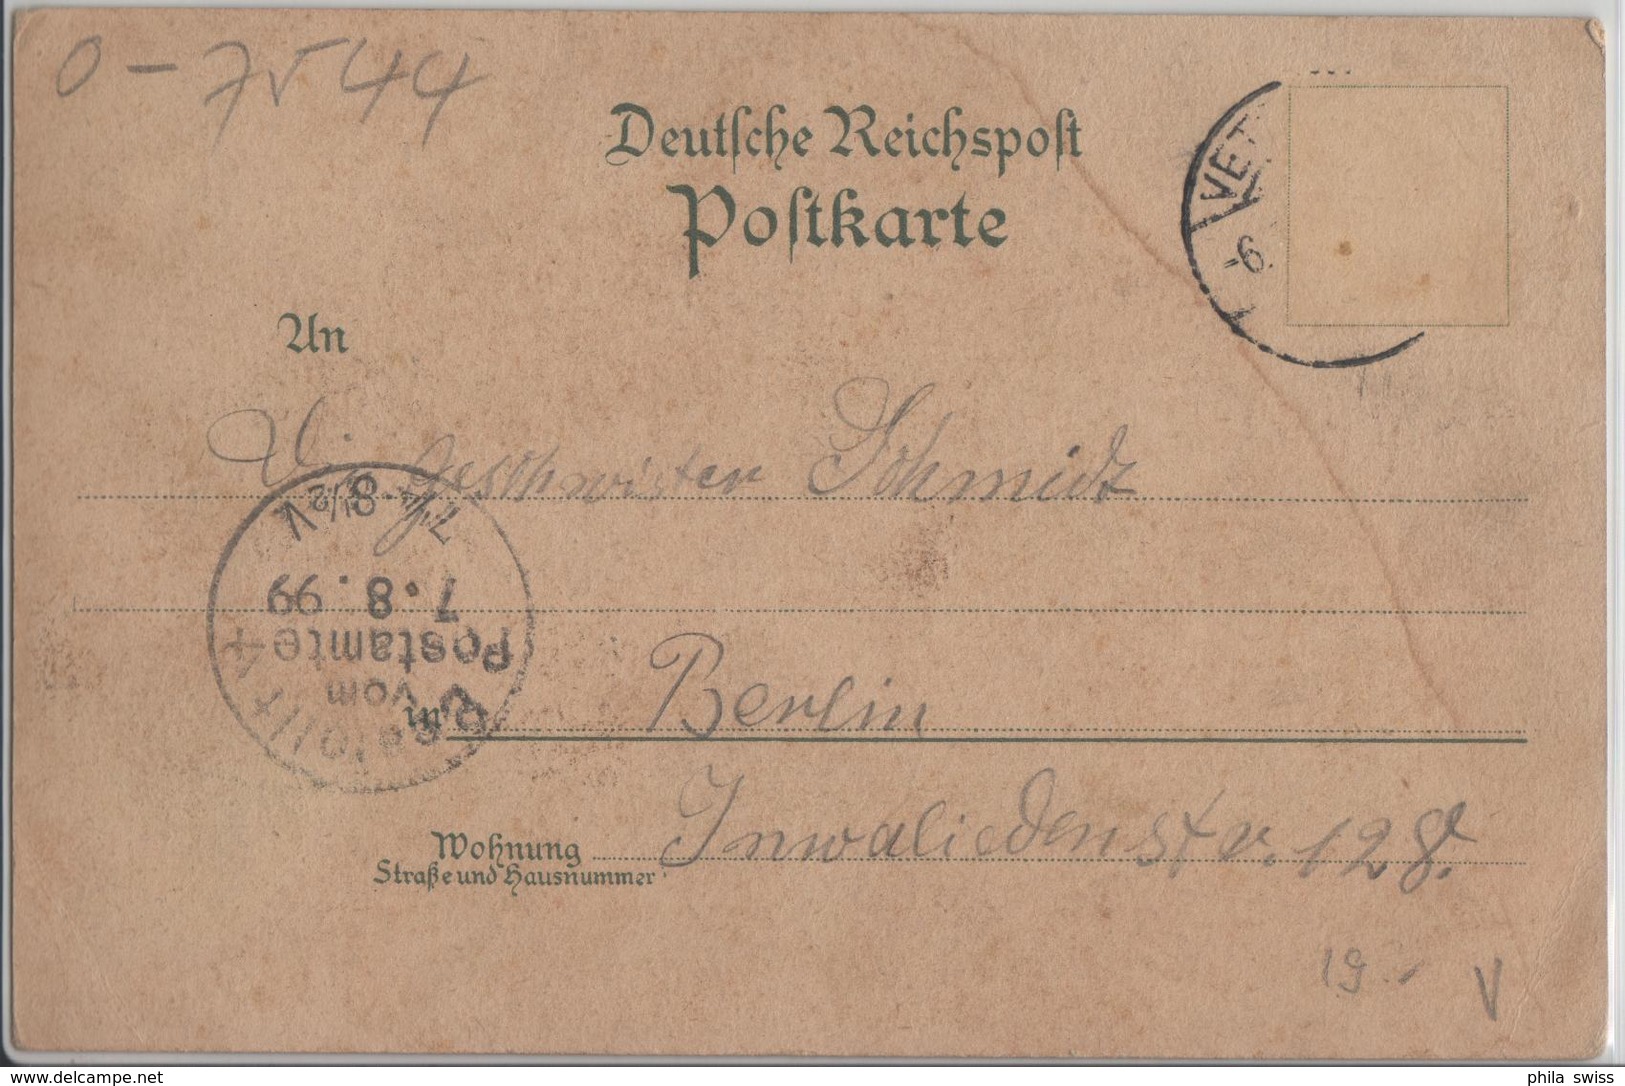 0-7544
Deutsche Reichspost
Postkarte
VET
-6.
An
Geschwister Schmidt
7¼-8½V
7.8.99
Postamte
vom
Bestellt
in Berlin
Inwaliedenstr. 128.
Wohnung
Straße und Hausnummer
19.-
V
delcampe.net
phila_swiss